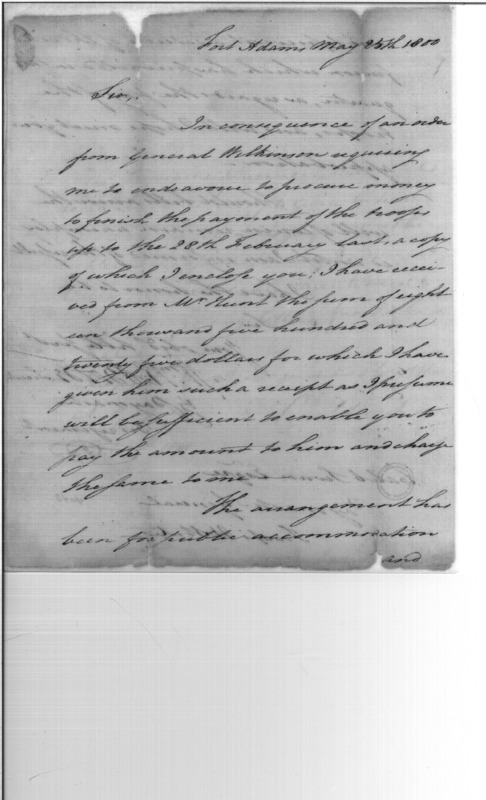 Fort Adams May 25th 1800
Sir,
In consequence of an order
from General Wilkinson requiring
me to endeavour to procure money
to finish the payment of the troops
up to the 28th February last, a copy
of which I enclose you; I have recei-
ved from Mr Hunt the sum of eight
een thousand five hundred and
twenty five dollars for which I have
given him such a receipt as I presume
will be sufficient to enable you to
pay the amount to him and charge
the same to me
The arrangement has
been for public accommodation
and